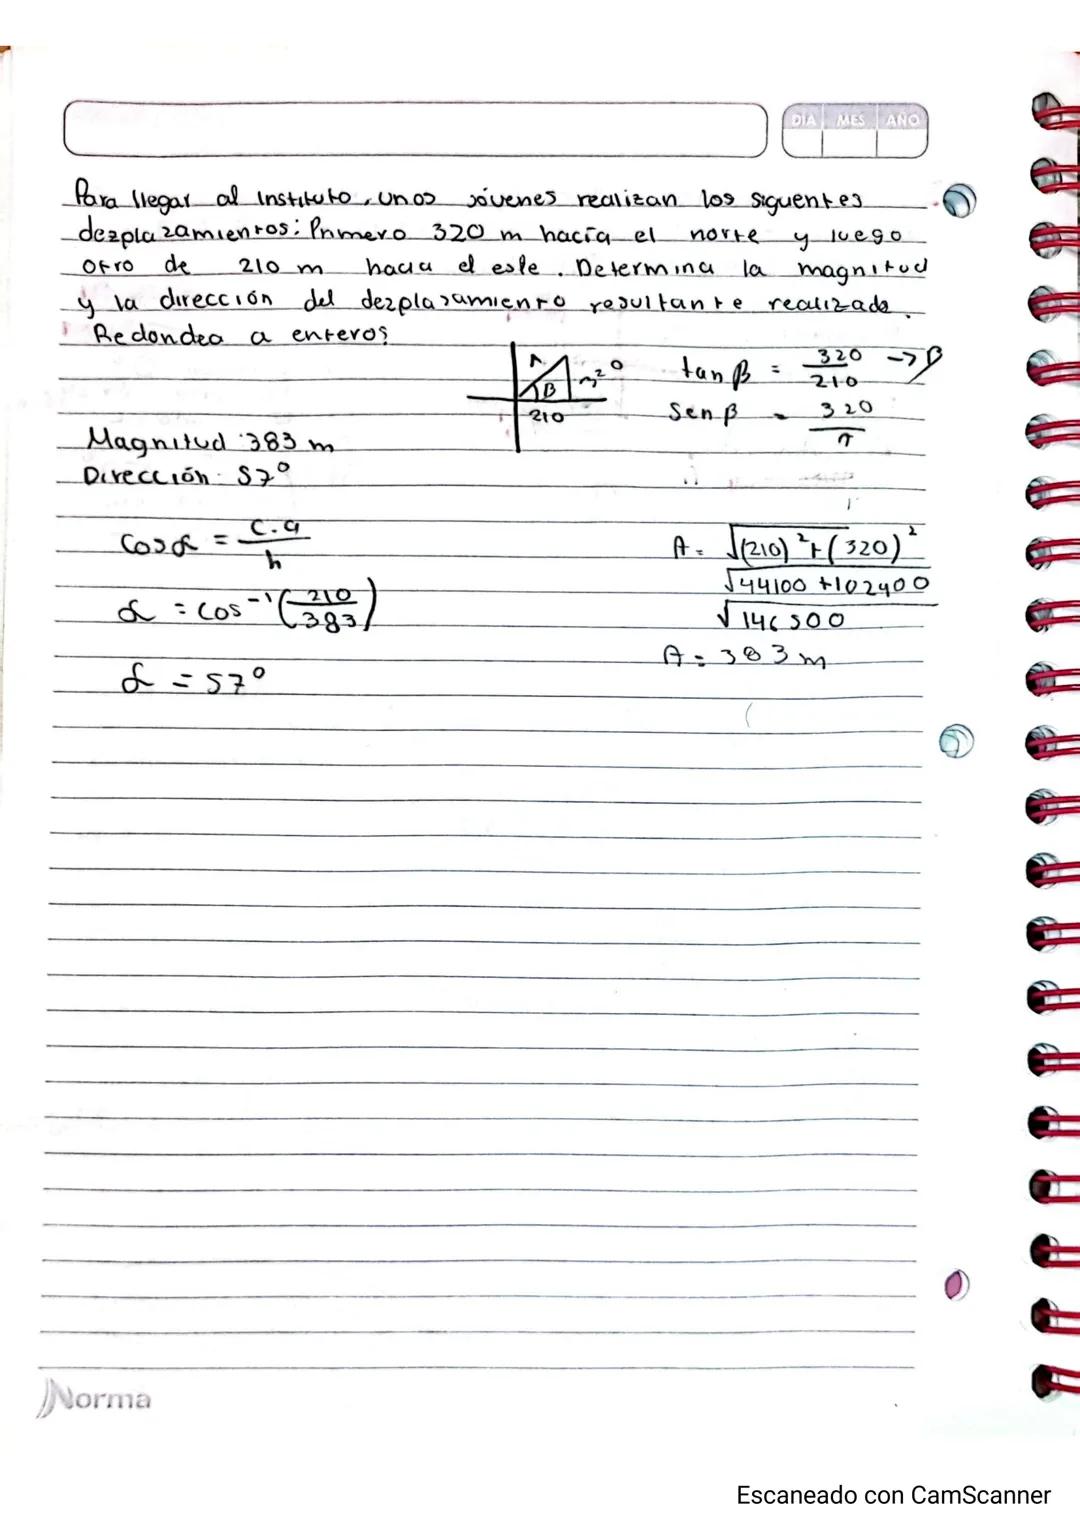 DIA MES AÑO
Para llegar al instituto, unos jóvenes realizan los siguentes
dezplazamientos: Primero 320 m hacía el norte y luego
Otro de 210 m hacia el este. Determina la magnitud
y la dirección del dezplazamiento resultante realizado.
Redondea a enteros
A B 320
210
tan β = 320/210 -> β
Sen β = 320/r
Magnitud: 383 m
Dirección: 57°
Cos α = c.a/h
α = cos⁻¹(210/383)
α = 57°
A = √(210)²+(320)²
√44100 + 102400
√146500
A = 383 m
Norma
Escaneado con CamScanner